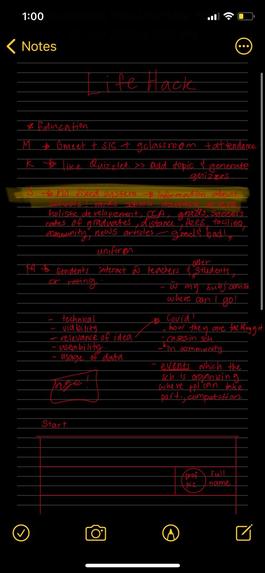 1:00
Notes
Life Hack
* Education
M → Gmeet + SLS + gclassroom + attendance
K → like Quizlet >> add topic & generate
quizzes
S → information about
holistic development, CCA, grades, success
rates of graduates, distance, fees, facilities,
community, news articles - good & bad,
uniform
N → students interact w teachers & other student,
or rating.
- w my subj combi
where can I go!
- technical
- viability
- relevance of idea
- useability
- usage of data
* Covid!
- how they are tackling it
- cases in sch
- in community
- events which the
sch is organising
where ppl can take
part, competitions
Start
prof
pic
Full
name